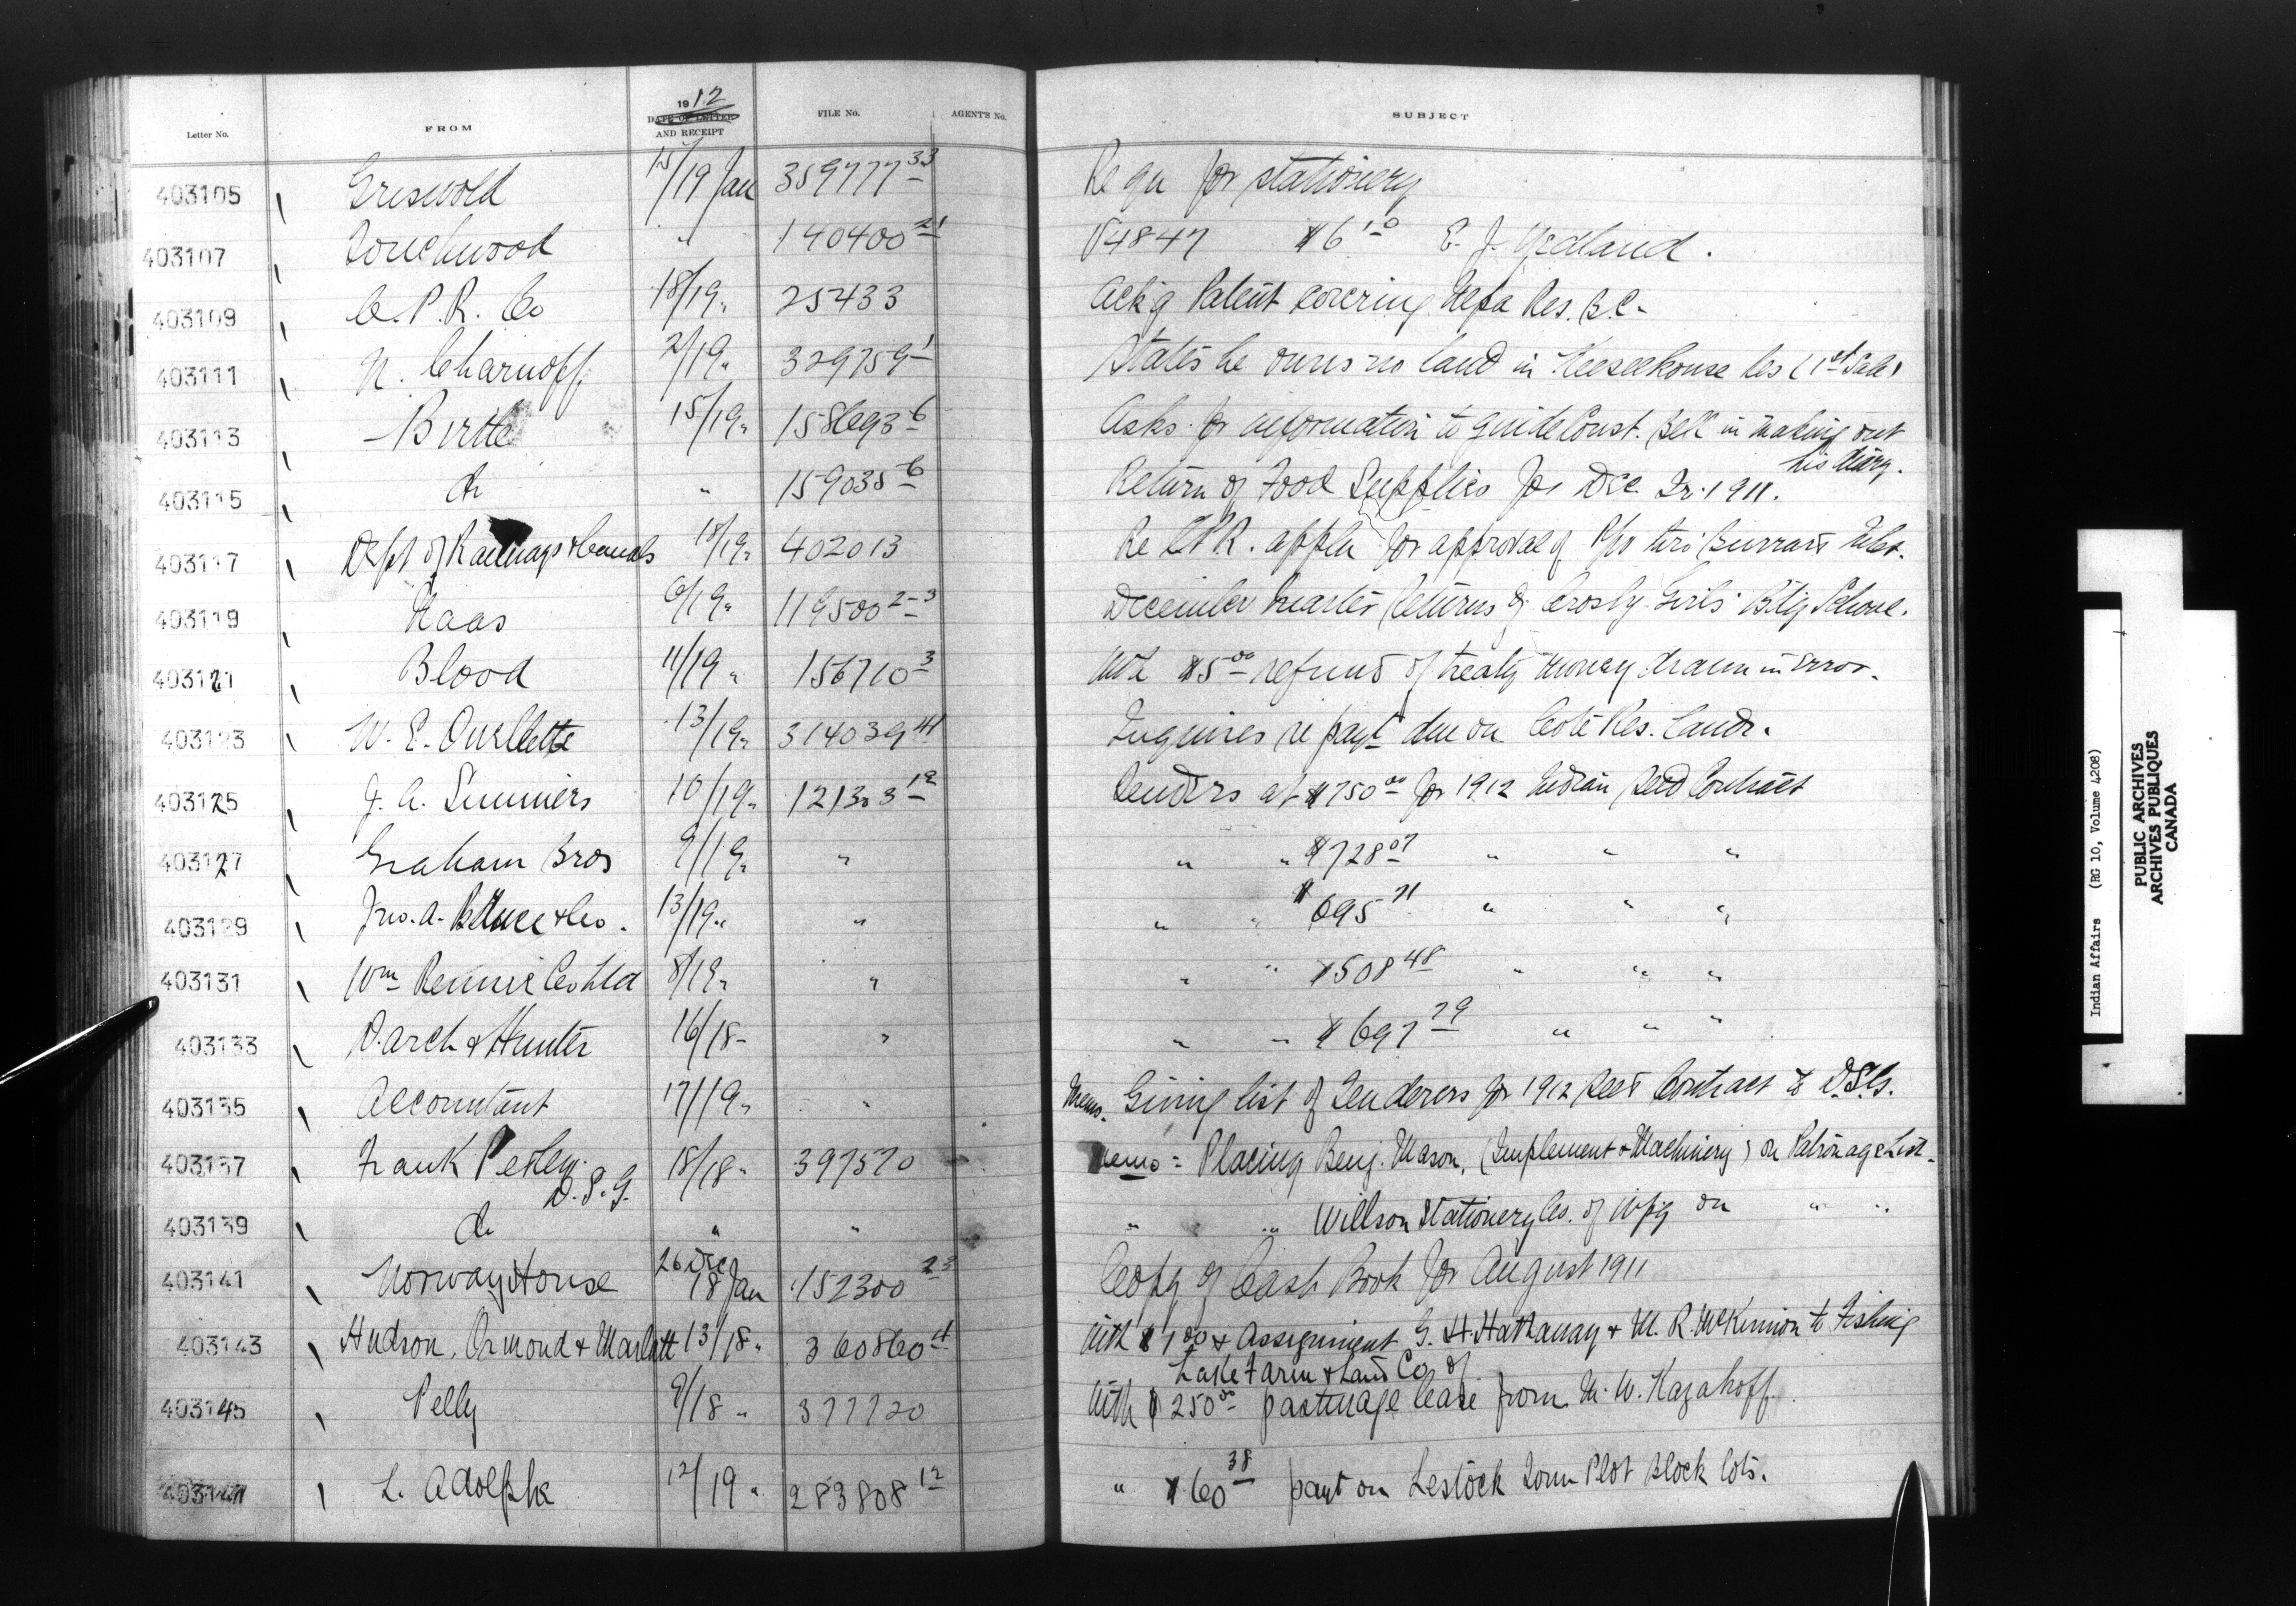 Letter No. FROM 1912 DATE OF LETTER AND RECEIPT FILE No. AGENT'S No. SUBJECT
403105 Griswold 15/19 Jan 359777 33 Requ for stationery
403107 Touchwood " 140400 21 V4847 $6 10 E. J.
403109 C.P.R. Co 18/19 " 25433 Ack'g Patent covering Res. B.C.
403111 N. Charnoff 2/19 " 329759 1 States he owns no land in Keeseekouse Res (1st Sale)
403113 Birtle 15/19 " 158693 6 Asks for information to guide Const. Bell in making out his diary.
403115 do " 159035 6 Return of Food Supplies for Dec. Qr. 1911.
403117 Dept of Railways & Canals 18/19 " 402013 Re CPR. appln for approval of thro' Burrard Inlet.
403119 Naas 6/19 " 119500 2-3 December quarter Returns of Crosby Girls' B'd'g School.
403121 Blood 11/19 " 156710 3 With $5 00 refund of treaty money drawn in error.
403123 W. E. Ouellette 13/19 " 314039 41 Inquires re payt due on Cote Res. Land.
403125 J. A. Simmers 10/19 " 121303 12 Tenders at $750 00 for 1912 Indian Seed Contract
403127 Graham Bros 9/19 " " " " $728 07 " " "
403129 Jno. A. Bruce & Co. 13/19 " " " " $695 71 " " "
403131 Wm Rennie Co Ltd 8/19 " " " " $508 48 " " "
403133 Darch & Hunter 16/18 " " " " $697 79 " " "
403135 Accountant 17/19 " " Memo. Giving list of Tenderers for 1912 Seed Contract to D.S.G.
403137 Frank Pedley D.S.G. 18/18 " 397570 Memo = Placing Benj. Mason, (Implement & Machinery) on Patronage List.
403139 do " " " " Willson Stationery Co. of Wpg on " "
403141 Norway House 26 Dec 18 Jan 152300 23 Copy of Cash Book for August 1911
403143 Hudson, Ormond & Marlatt 13/18 " 360860 4 With $1 00 & Assignment G. H. Hathaway & M. R. McKinnon to Fishing Lake Farm & Land Co of
403145 Pelly 9/18 " 377720 With $250 00 pasturage lease from M. W. Kazakoff.
L. Adolphe 12/19 " 283808 12 " $60 38 payt on Lestock Town Plot Block lots.
Indian Affairs (RG 10, Volume 4208)
PUBLIC ARCHIVES
ARCHIVES PUBLIQUES
CANADA